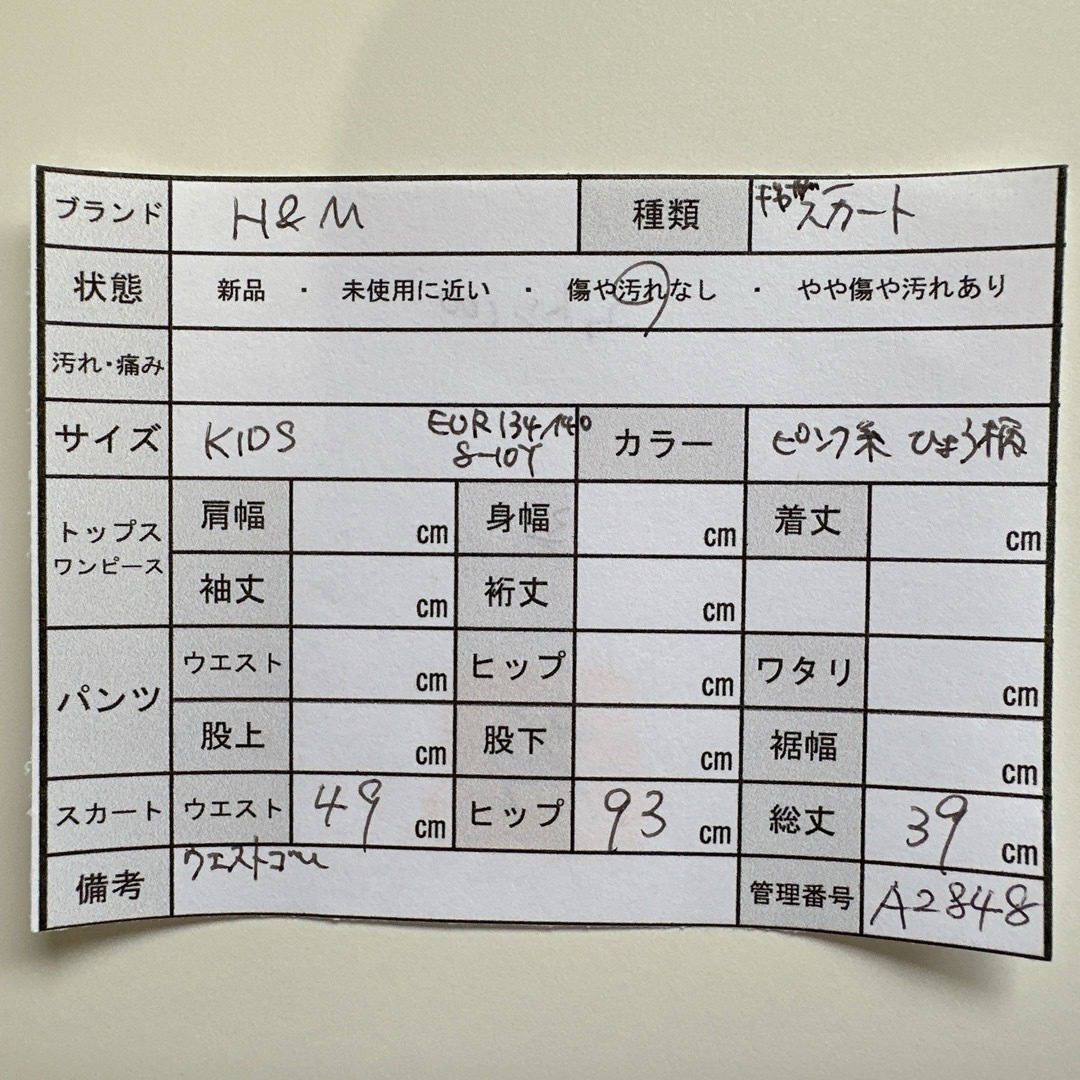 ブランド H&M 種類 ギャザースカート
状態 新品 ・ 未使用に近い ・ 傷や汚れなし ・ やや傷や汚れあり
汚れ・痛み
サイズ KIDS EUR134/140 8-10Y カラー ピンク系 ひょう柄
トップス ワンピース 肩幅 cm 身幅 cm 着丈 cm
袖丈 cm 裄丈 cm
パンツ ウエスト cm ヒップ cm ワタリ cm
股上 cm 股下 cm 裾幅 cm
スカート ウエスト 49 cm ヒップ 93 cm 総丈 39 cm
備考 ウエストゴム 管理番号 A2848